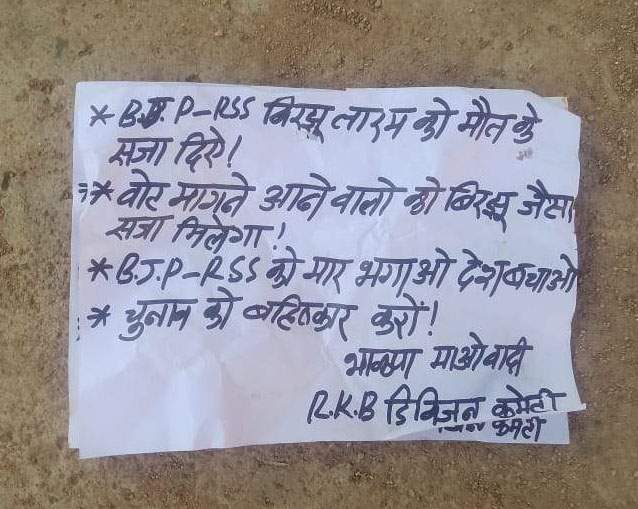 * B.J.P-RSS बिरझू तारम को मौत के
सजा दिऐ!
* वोट मागने आने वालो को बिरझू जैसा
सजा मिलेगा!
* B.J.P-RSS को मार भगाओ देश बचाओ
* चुनाव को बहिष्कार करों!
भाकपा माओवादी
R.K.B डिविजन कमेटी
कमेटी